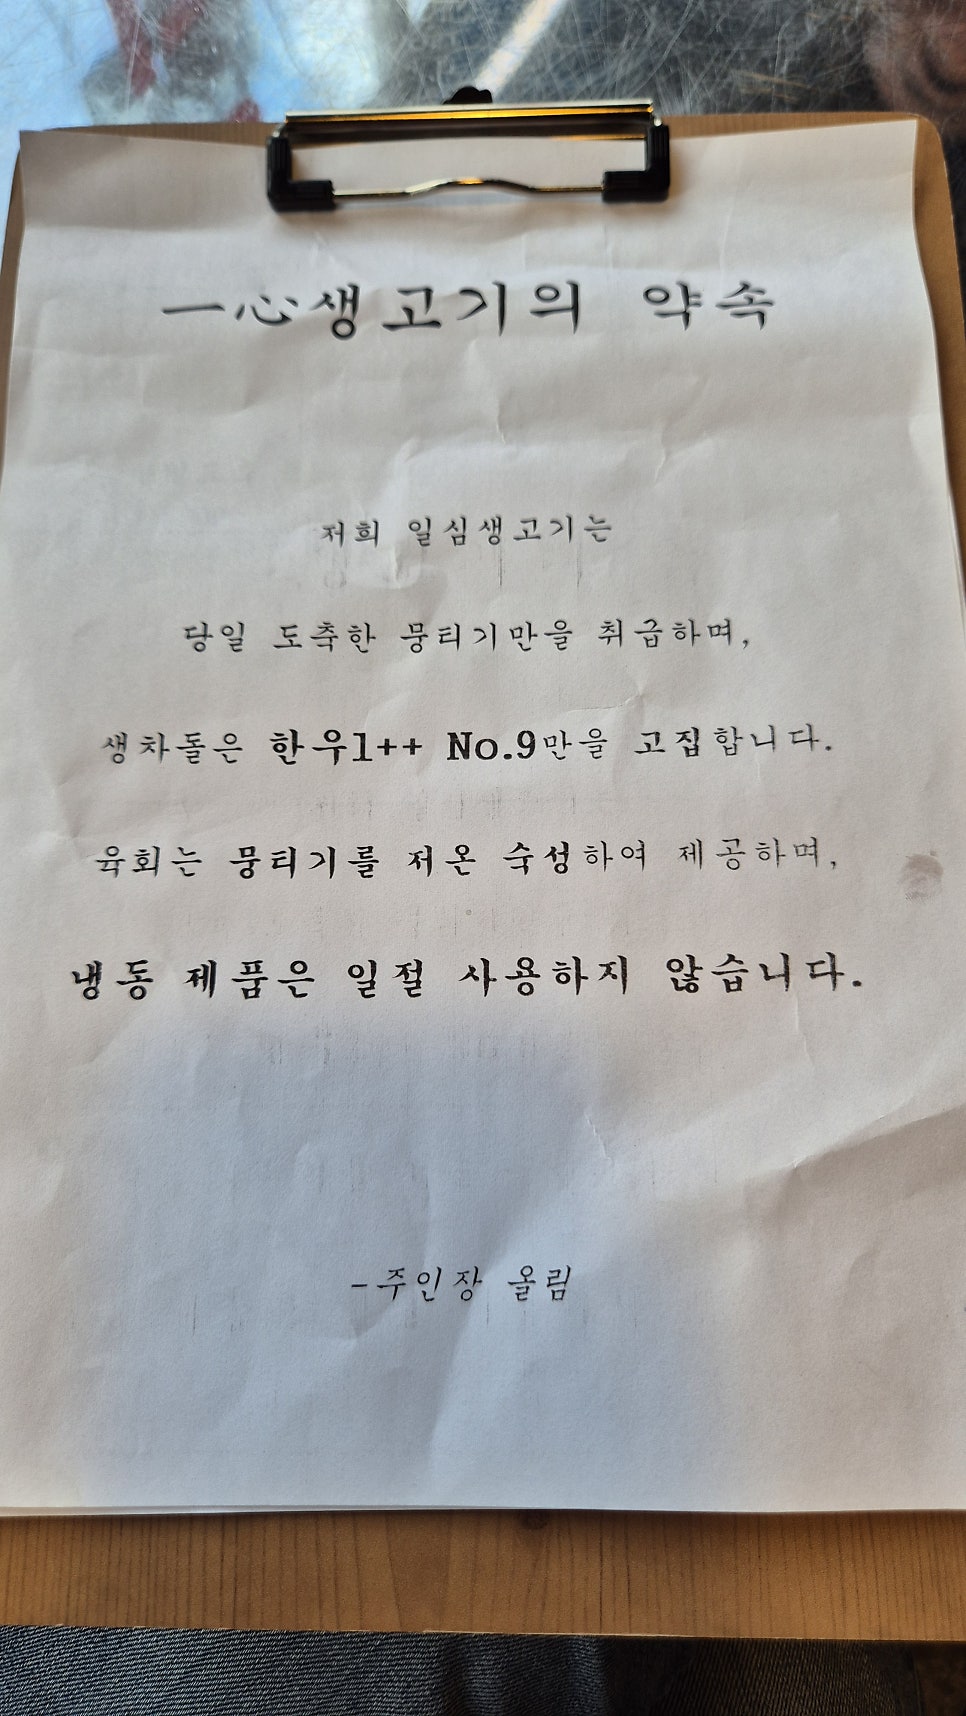 一心생고기의 약속
저희 일심생고기는
당일 도축한 뭉티기만을 취급하며,
생차돌은 한우1++ No.9만을 고집합니다.
육회는 뭉티기를 저온 숙성하여 제공하며,
냉동 제품은 일절 사용하지 않습니다.
-주인장 올림